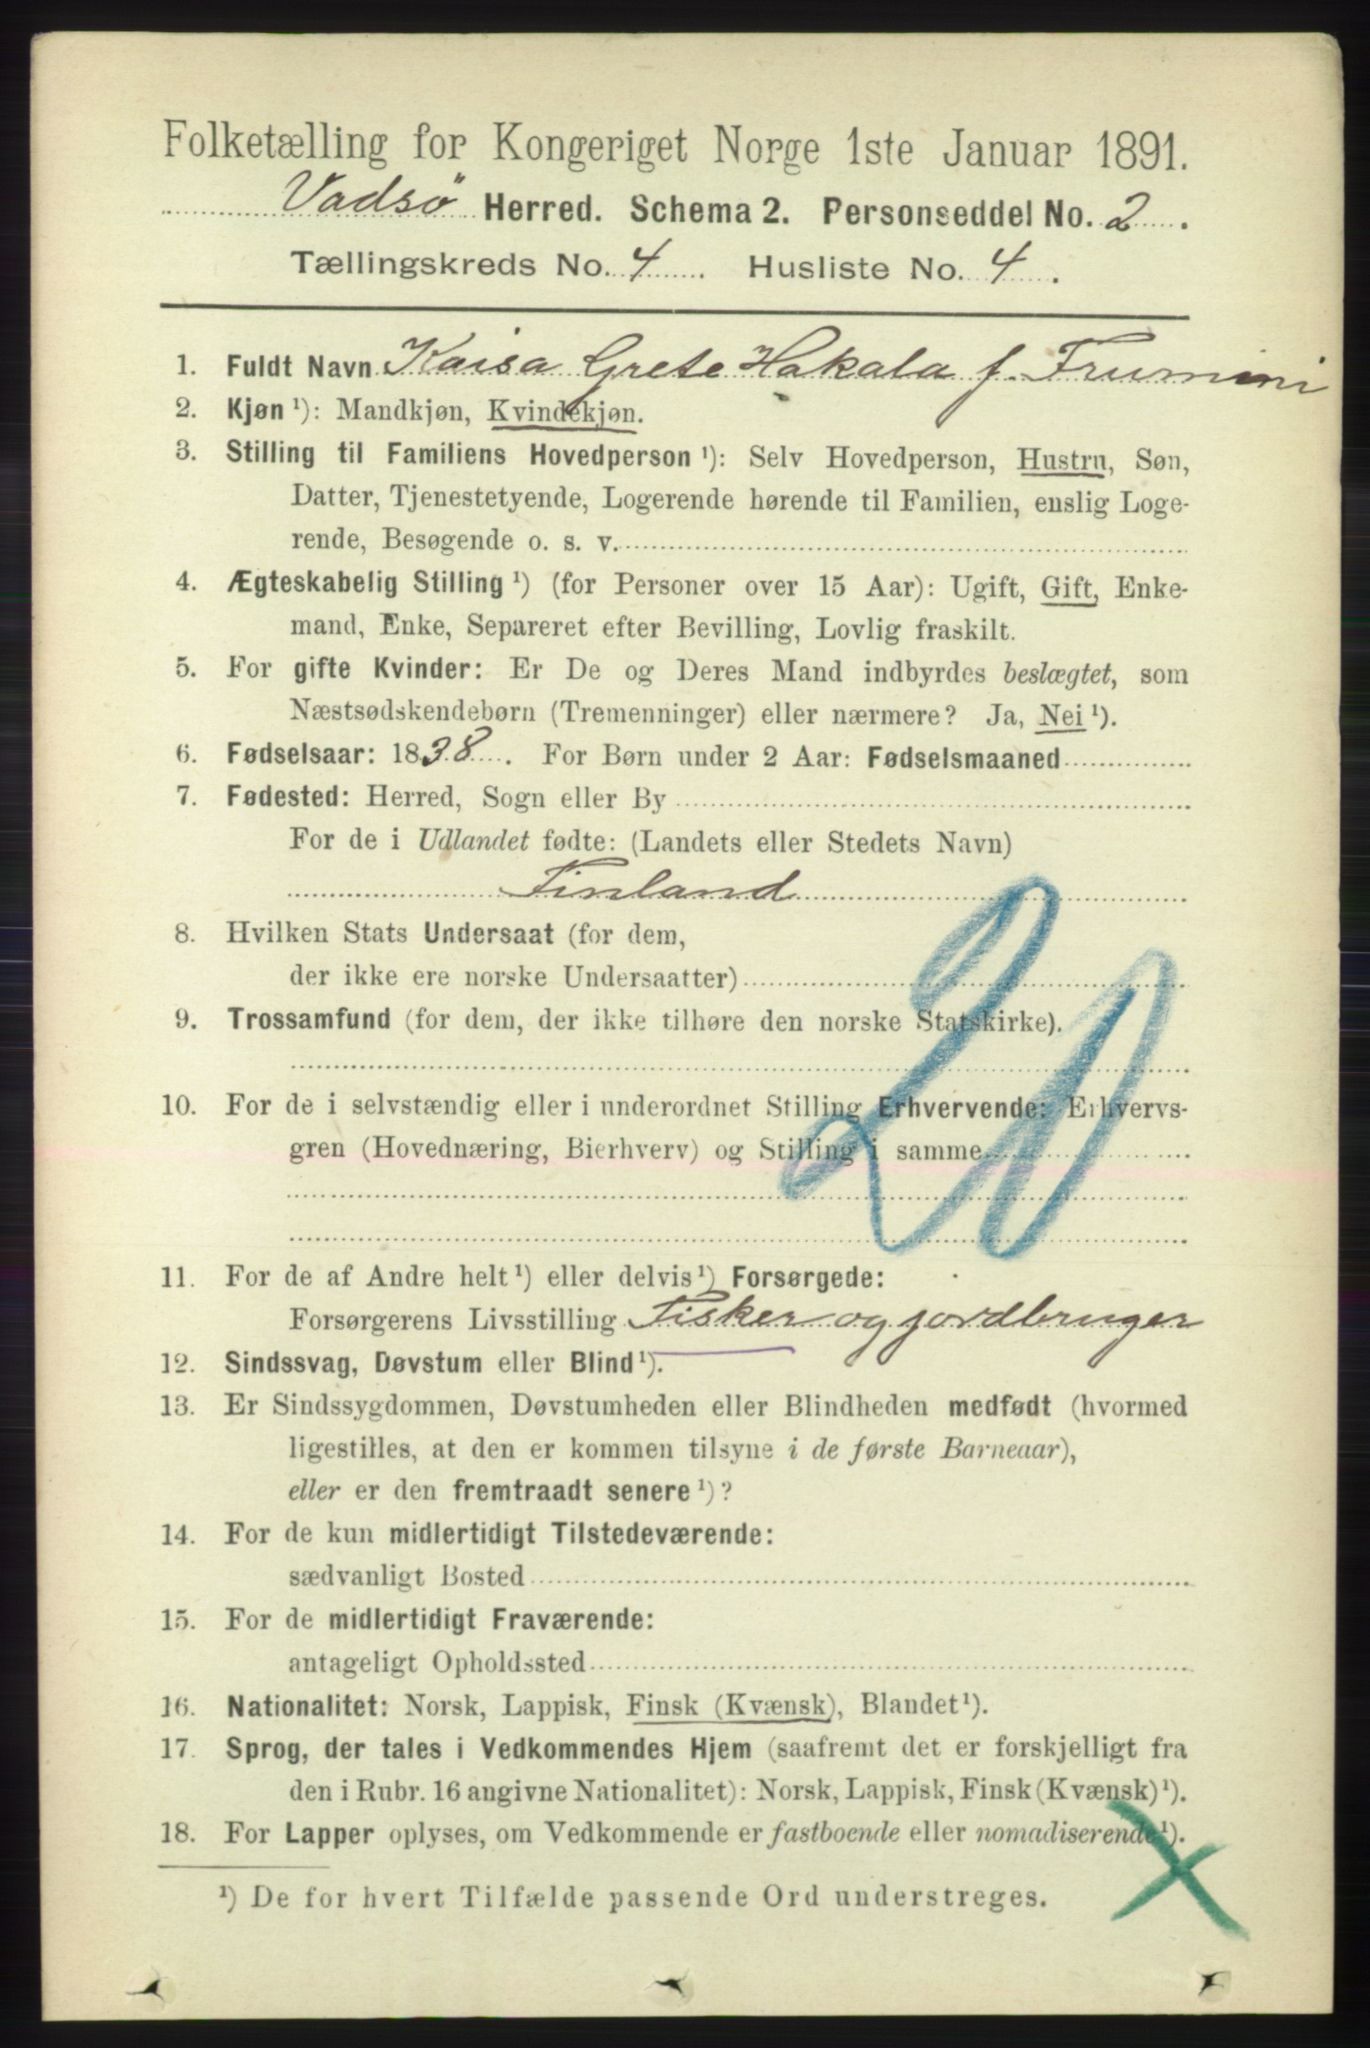 Folketælling for Kongeriget Norge 1ste Januar 1891.
Vadsö Herred. Schema 2. Personseddel No. 2.
Tællingskreds No. 4. Husliste No. 4.
1. Fuldt Navn Kaisa Grete Hakala f.
2. Kjøn ¹): Mandkjøn, Kvindekjøn.
3. Stilling til Familiens Hovedperson ¹): Selv Hovedperson, Hustru, Søn,
Datter, Tjenestetyende, Logerende hørende til Familien, enslig Loge-
rende, Besøgende o. s. v.
4. Ægteskabelig Stilling ¹) (for Personer over 15 Aar): Ugift, Gift, Enke-
mand, Enke, Separeret efter Bevilling, Lovlig fraskilt.
5. For gifte Kvinder: Er De og Deres Mand indbyrdes beslægtet, som
Næstsødskendebørn (Tremenninger) eller nærmere? Ja, Nei ¹).
6. Fødselsaar: 1838. For Børn under 2 Aar: Fødselsmaaned
7. Fødested: Herred, Sogn eller By
For de i Udlandet fødte: (Landets eller Stedets Navn)
Finland
8. Hvilken Stats Undersaat (for dem,
der ikke ere norske Undersaatter)
9. Trossamfund (for dem, der ikke tilhøre den norske Statskirke).
10. For de i selvstændig eller i underordnet Stilling Erhvervende: Erhvervs-
gren (Hovednæring, Bierhverv) og Stilling i samme
20
11. For de af Andre helt ¹) eller delvis ¹) Forsørgede:
Forsørgerens Livsstilling Fisker og jordbruger
12. Sindssvag, Døvstum eller Blind ¹).
13. Er Sindssygdommen, Døvstumheden eller Blindheden medfødt (hvormed
ligestilles, at den er kommen tilsyne i de første Barneaar),
eller er den fremtraadt senere ¹)?
14. For de kun midlertidigt Tilstedeværende:
sædvanligt Bosted
15. For de midlertidigt Fraværende:
antageligt Opholdssted
16. Nationalitet: Norsk, Lappisk, Finsk (Kvænsk), Blandet ¹).
17. Sprog, der tales i Vedkommendes Hjem (saafremt det er forskjelligt fra
den i Rubr. 16 angivne Nationalitet): Norsk, Lappisk, Finsk (Kvænsk) ¹).
18. For Lapper oplyses, om Vedkommende er fastboende eller nomadiserende ¹).
¹) De for hvert Tilfælde passende Ord understreges.